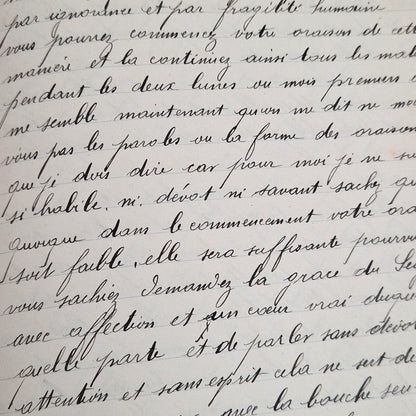 par ignorance et par fragilité humaine
vous pourrez commencez votre oraison de cette
maniere et la continuez ainsi tous les mat
pendant les deux lunes ou mois premiers
me semble maintenant qu'on me dit ne me
vous pas les paroles ou la forme des oraison
que je dois dire car pour moi je ne su
si habile, ni, dévot ni savant sachez qu
quoique dans le commencement votre ora
soit faible, elle sera suffisante pourvu
vous sachiez demandez la grace du Se
avec affection et un cœur vrai duqu
quelle parte et de parler sans dévo
attention et sans esprit cela ne sert de
avec la bouche seu